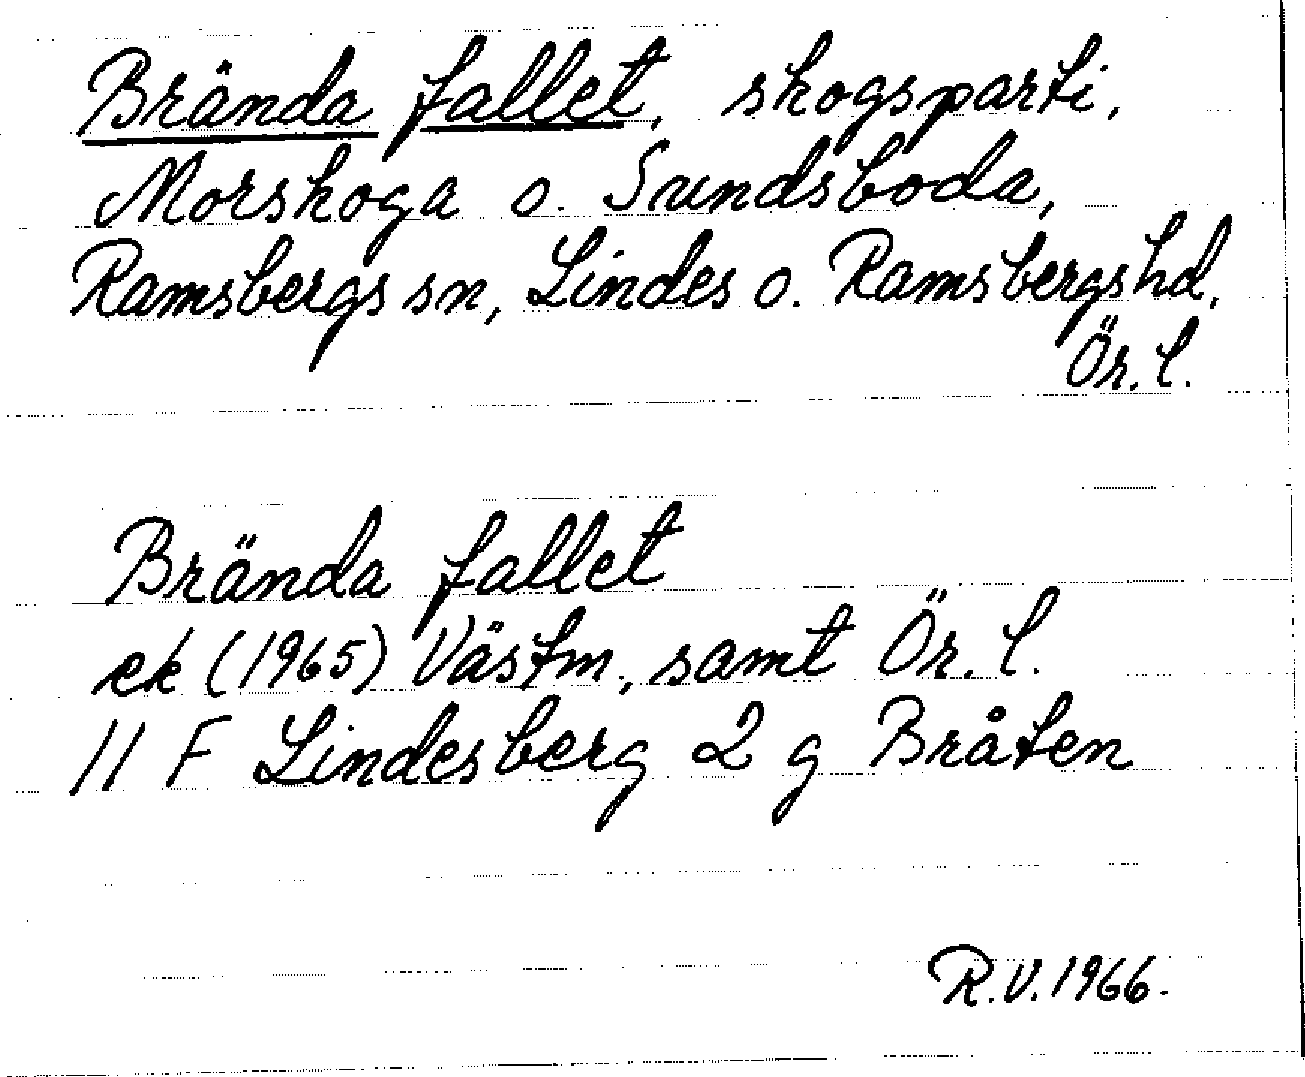 Brända fallet, skogsparti,
Morskoga o. Sundsboda,
Ramsbergs sn, Lindes o. Ramsbergs hd,
Ör. l.
Brända fallet
ek (1965) Västm. samt Ör. l.
11 F Lindesberg 2 g Bråten
R.V. 1966.